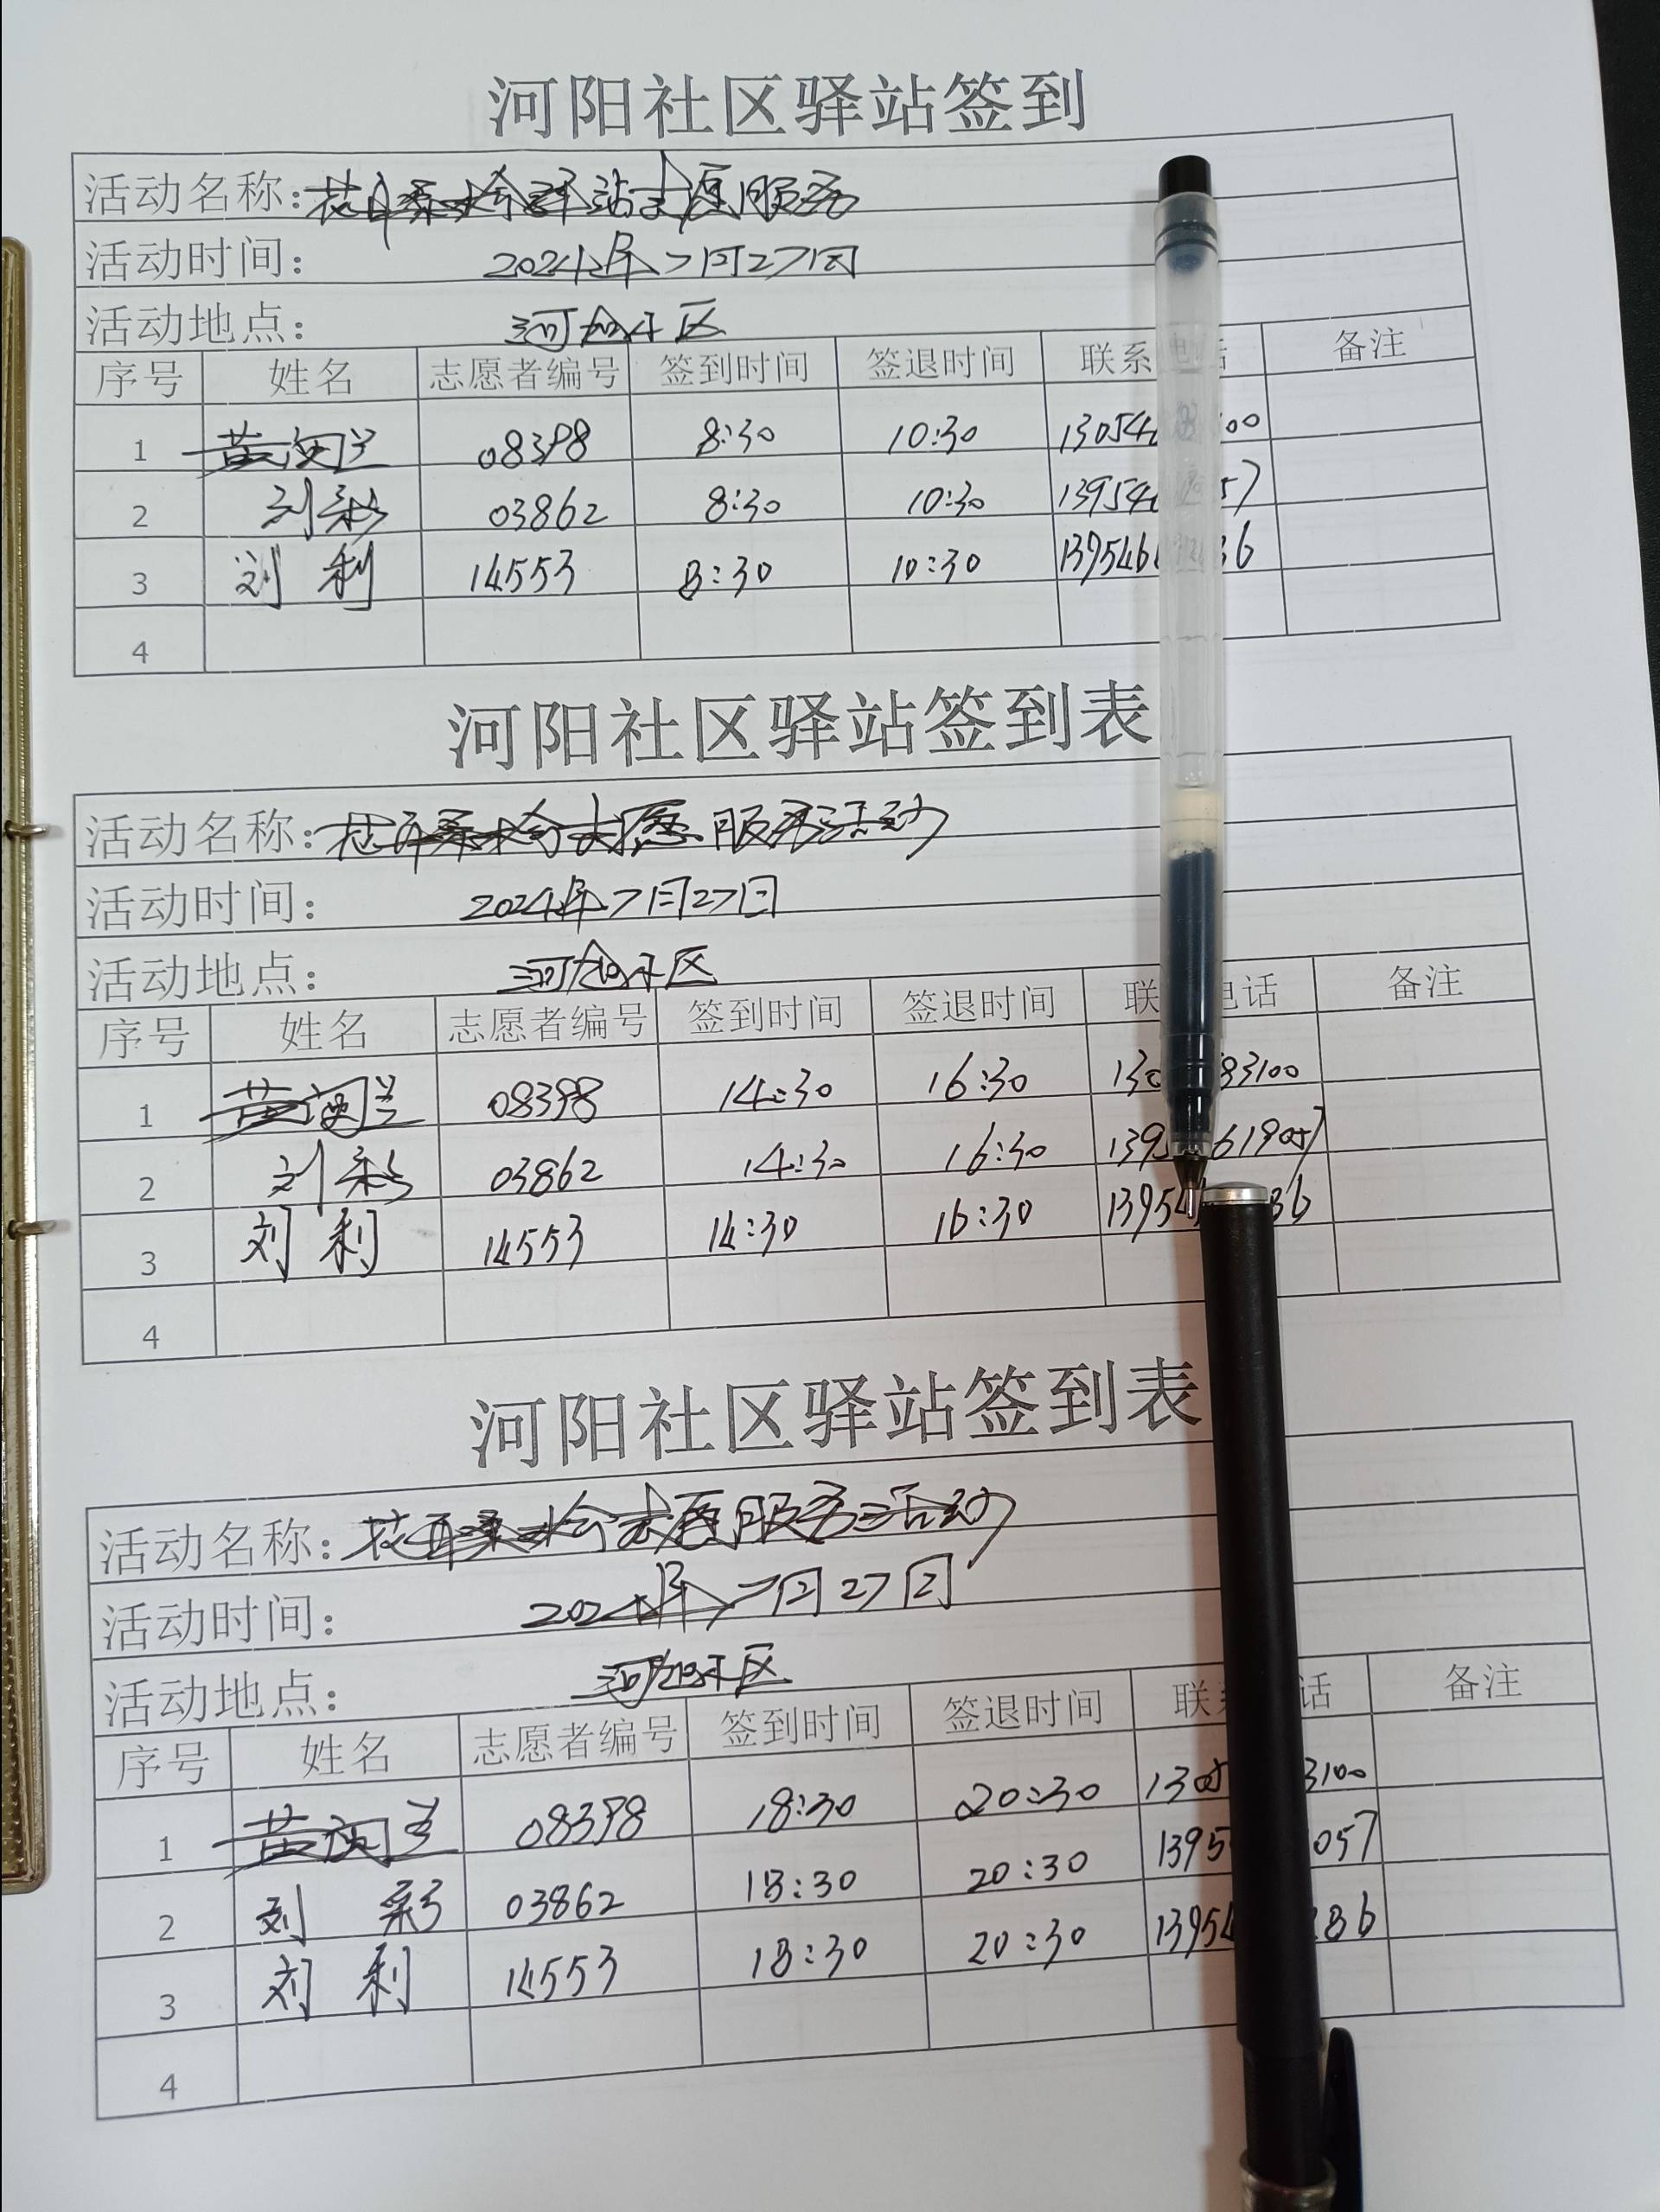 河阳社区驿站签到
活动名称: 花耳森林会驿站志愿服务
活动时间: 2024年7月27日
活动地点: 河阳社区
序号 姓名 志愿者编号 签到时间 签退时间 联系 备注
1 黄 兰 08398 8:30 10:30 13054 00
2 刘彩 03862 8:30 10:30 13954 57
3 刘利 14553 8:30 10:30 139546 36
4
河阳社区驿站签到表
活动名称: 志愿服务活动
活动时间: 2024年7月27日
活动地点: 河阳社区
序号 姓名 志愿者编号 签到时间 签退时间 联 电话 备注
1 黄 兰 08398 14:30 16:30 130 83100
2 刘彩 03862 14:30 16:30 139 619057
3 刘利 14553 14:30 16:30 13954 86
4
河阳社区驿站签到表
活动名称: 志愿服务活动
活动时间: 2024年7月27日
活动地点: 河阳社区
序号 姓名 志愿者编号 签到时间 签退时间 联 话 备注
1 黄 兰 08398 18:30 20:30 1305 3100
2 刘彩 03862 18:30 20:30 1395 057
3 刘利 14553 18:30 20:30 13954 286
4